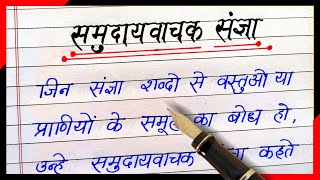 समुदायवाचक संज्ञा
जिन संज्ञा शब्दो से वस्तुओ या
प्राणियों के समूह का बोध हो,
उन्हे समुदायवाचक कहते